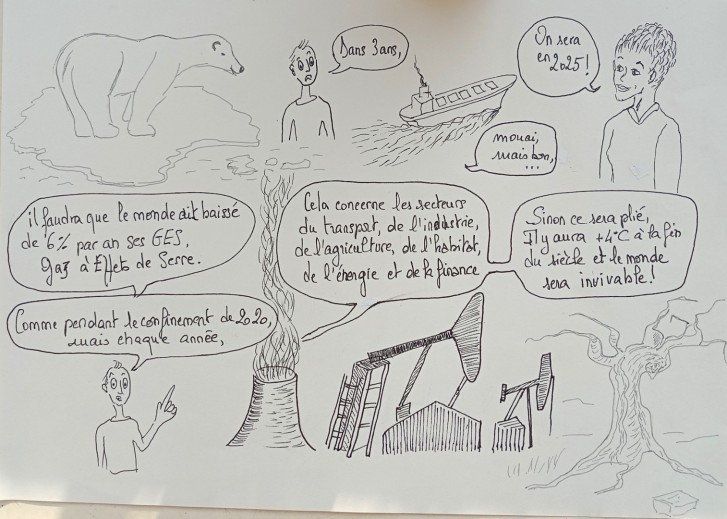 Dans 3 ans,
On sera
en 2025 !
mouai,
mais bon,
...
il faudra que le monde ait baissé
de 6% par an ses GES,
Gaz à Effets de Serre.
Comme pendant le confinement de 2020,
mais chaque année,
Cela concerne les secteurs
du transport, de l'industrie,
de l'agriculture, de l'habitat,
de l'énergie et de la finance
Sinon ce sera plié,
Il y aura +4°C à la fin
du siècle et le monde
sera invivable !